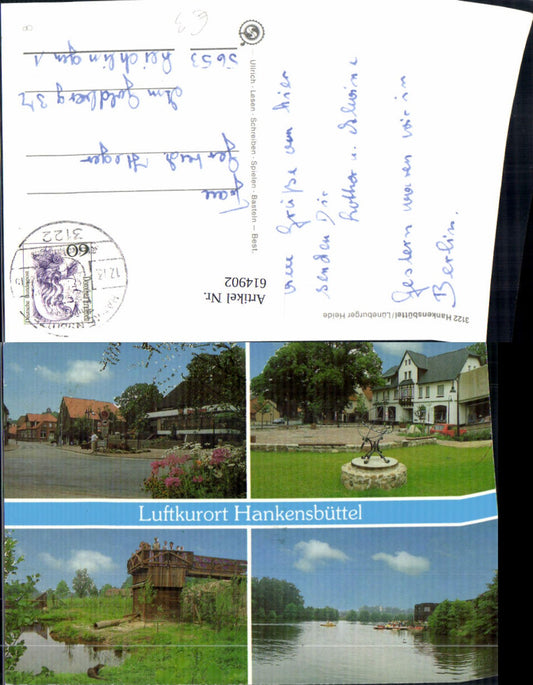 viele Grüße von hier
senden Dir
Lothar u.
Gestern waren wir in
Berlin.
3122 Hankensbüttel/Lüneburger Heide
Artikel Nr.
614902
Ullrich · Lesen · Schreiben · Spielen · Basteln – Best.
Frau
Am Goldberg 37
5653 Leichlingen 1
3122
60
Luftkurort Hankensbüttel